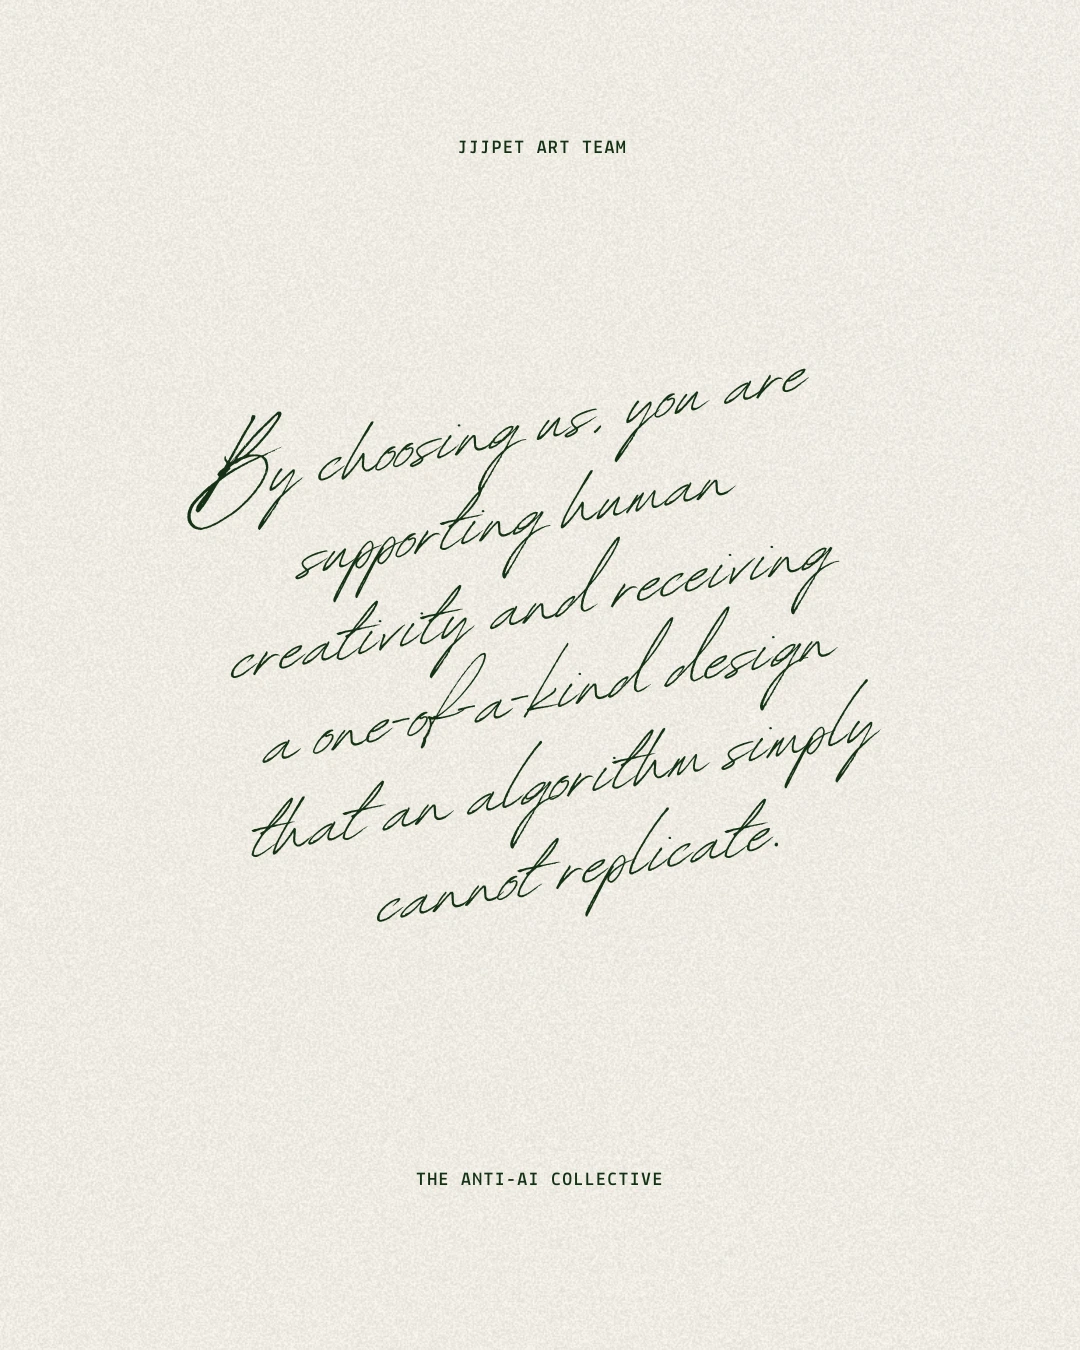 JJJPET ART TEAM
By choosing us, you are
supporting human
creativity and receiving
a one-of-a-kind design
that an algorithm simply
cannot replicate.
THE ANTI-AI COLLECTIVE